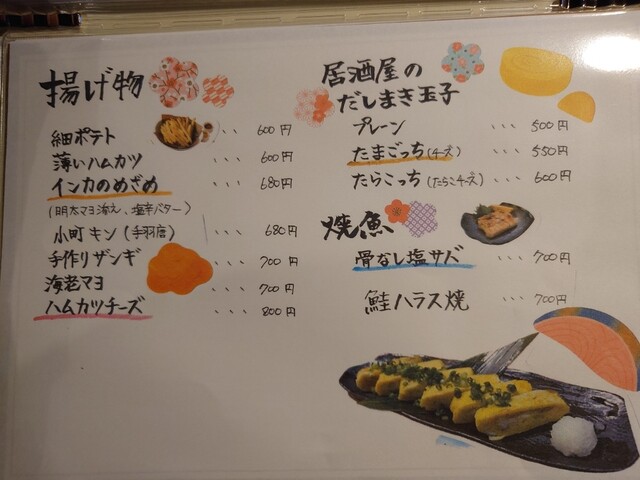 揚げ物
細ポテト ・・・ 600円
薄いハムカツ ・・・ 600円
インカのめざめ ・・・ 680円
(明太マヨ添え、塩辛バター)
小町キン(手羽唐) ・・・ 680円
手作りザンギ ・・・ 700円
海老マヨ ・・・ 700円
ハムカツチーズ ・・・ 800円
居酒屋の
だしまき玉子
プレーン ・・・ 500円
たまごっち(チーズ) ・・・ 550円
たらこっち(たらこチーズ) ・・・ 600円
焼魚
骨なし塩サバ ・・・ 700円
鮭ハラス焼 ・・・ 700円